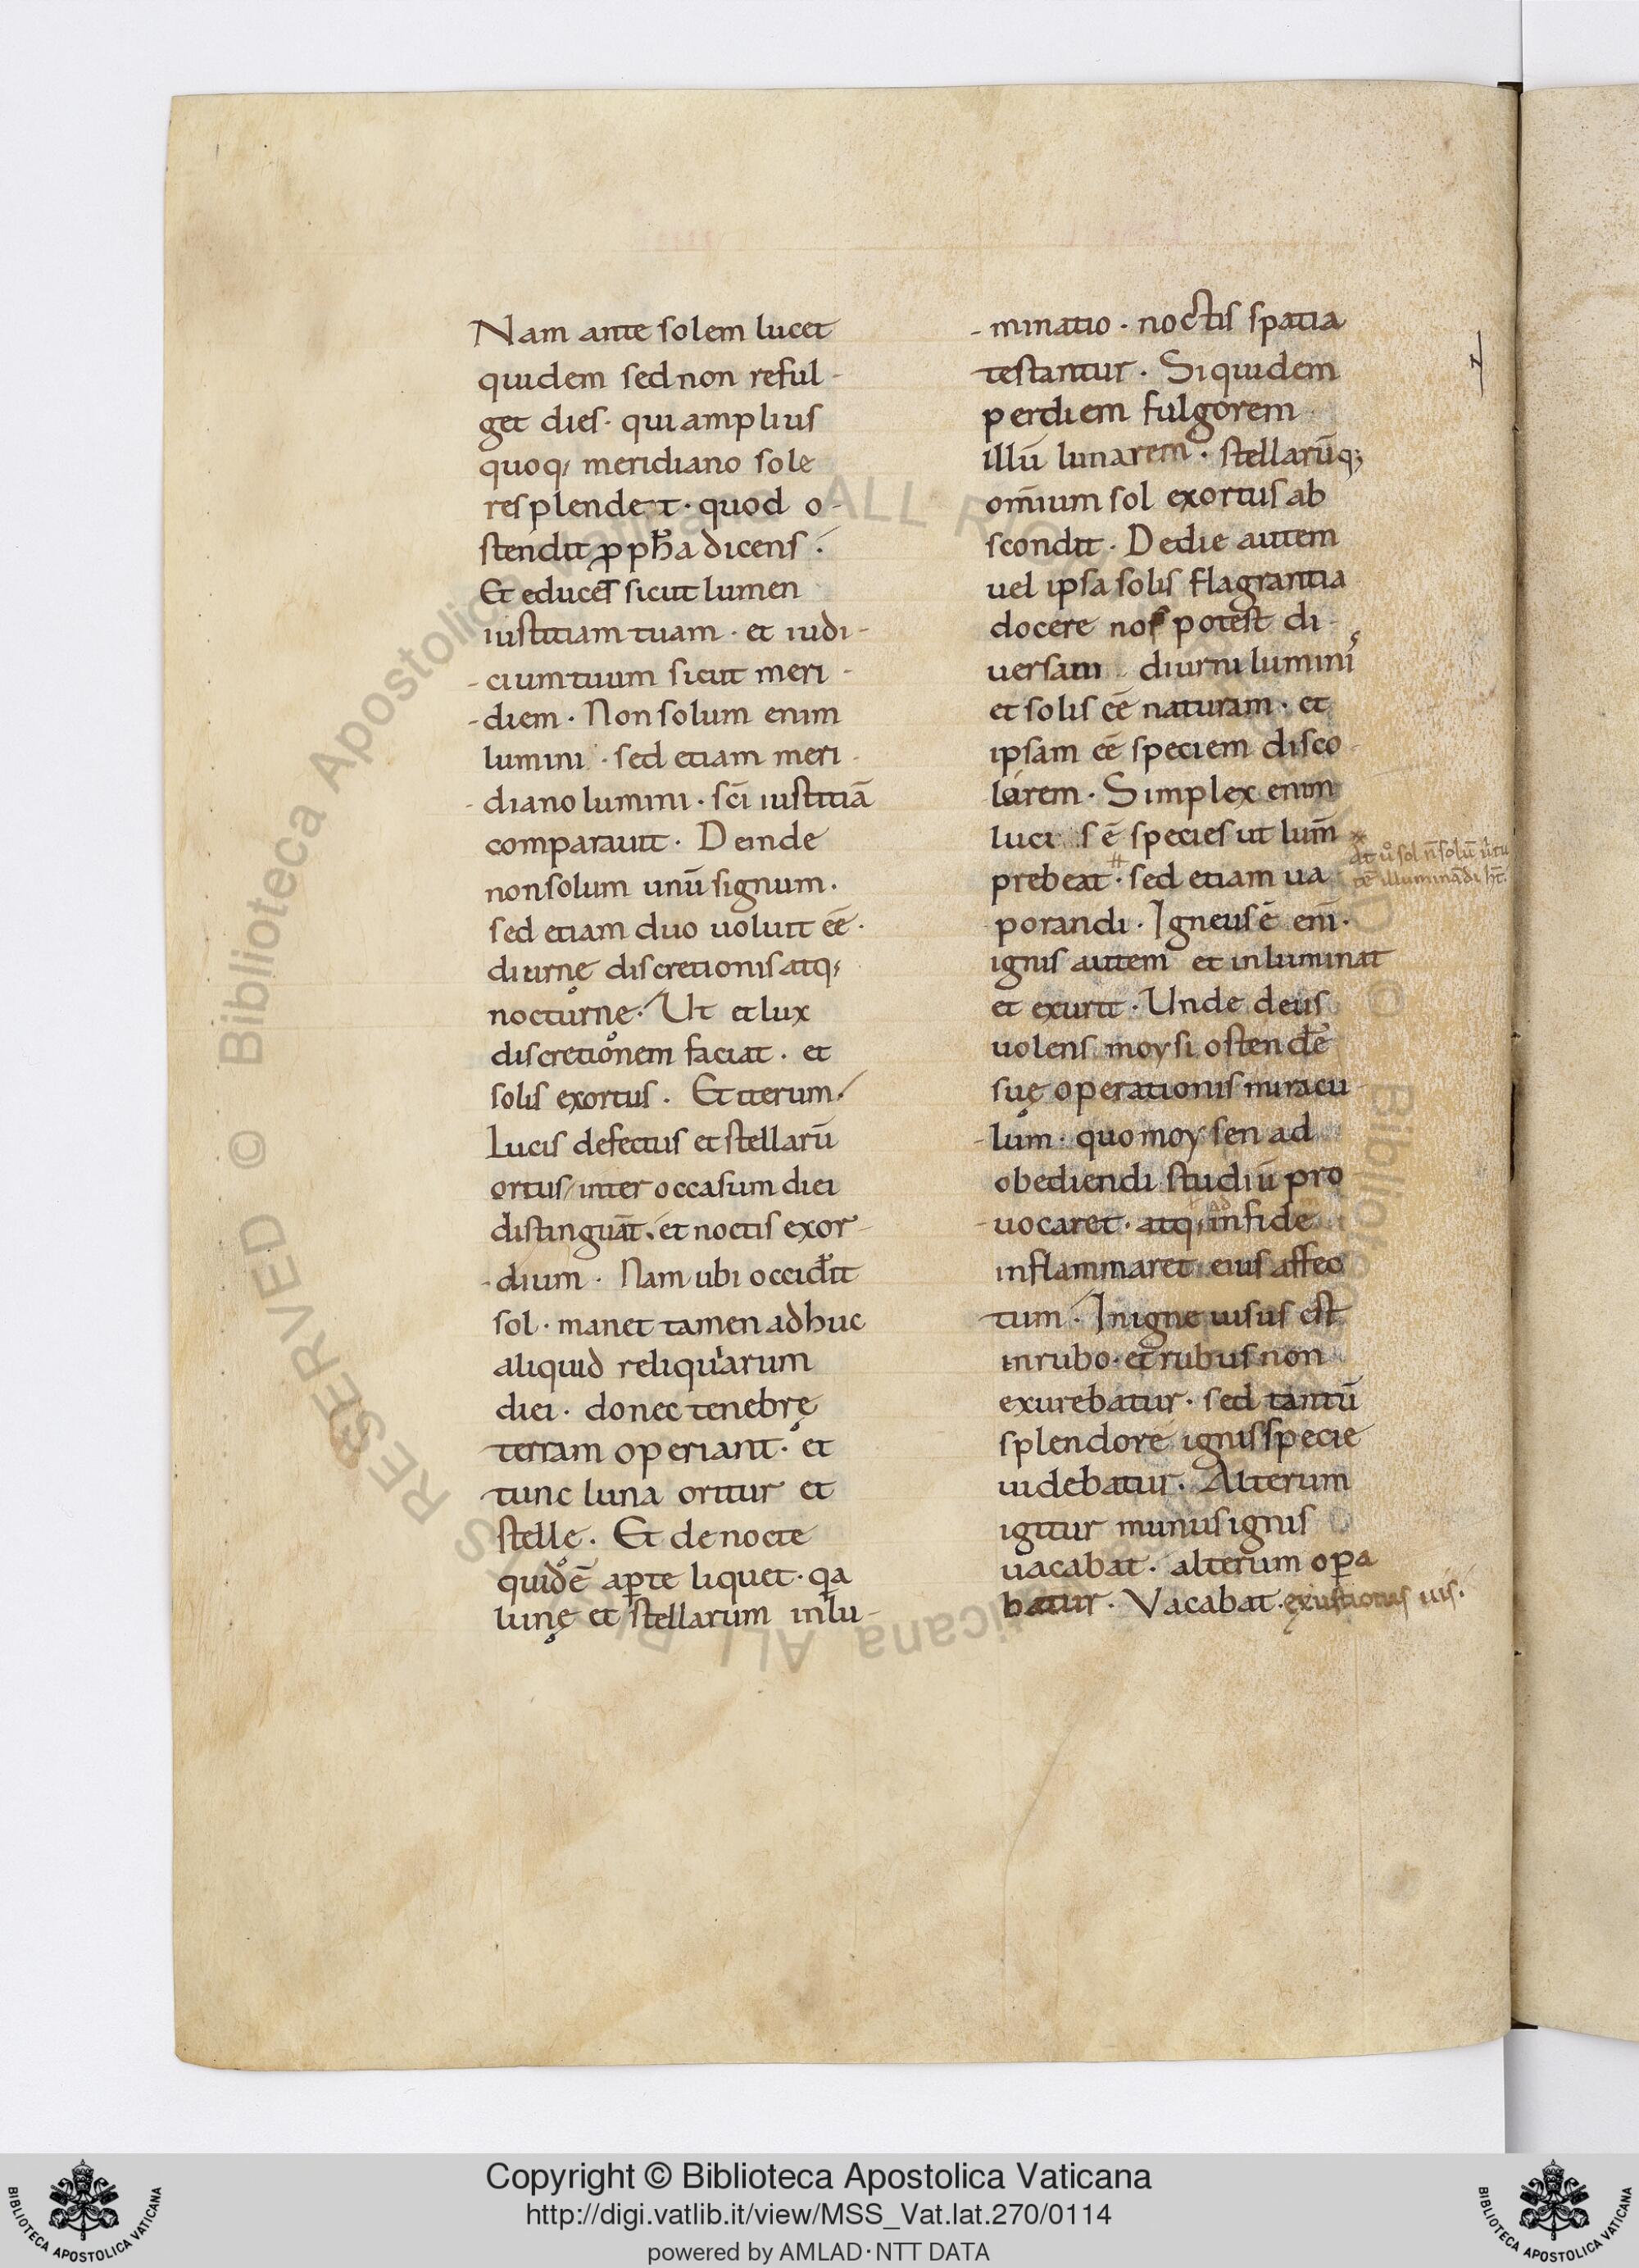 Nam ante solem lucet
quidem sed non reful-
get dies· qui amplius
quoq; meridiano sole
resplendet· quod o-
stendit ꝓph̄a dicens·
Et educet sicut lumen
iustitiam tuam· et iudi-
-cium tuum sicut meri-
-diem· Non solum enim
lumini· sed etiam meri-
-diano lumini· sc̄i iustitiā
comparauit· Deinde
non solum unū signum·
sed etiam duo uoluit eē·
diurnę discretionis atq;
nocturnę· Ut et lux
discretionem faciat· et
solis exortus· Et iterum
Lucis defectus et stellarū
ortus/ inter occasum diei
distinguāt· et noctis exor-
-dium· Nam ubi occider̄it
sol· manet tamen adhuc
aliquid reliquiarum
diei· donec tenebrę
terram operiant· et
tunc luna oritur et
stellę· Et de nocte
quidē aꝑte liquet· qa
lunę et stellarum inlu-
-minatio· noctis spatia
testantur· Siquidem
per diem fulgorem
illū lunarem· stellarūq;
om̄ium sol exortus ab
scondit· De die autem
uel ipsa solis flagrantia
docere nos potest di-
uersam diurni luminis
et solis eē naturam· et
ipsam eē speciem disco-
lorem· Simplex enim
luci s ē species ut lum̄
prebeat· sed etiam ua
porandi· Igneus ē eni·
ignis autem et inluminat
et exurit· Unde deus
uolens moysi ostendere
suę operationis miracu-
-lum· quo moysen ad
obediendi studiū pro
-uocaret· atq; in fide
inflammaret eius affec
tum· In igne uisus est
in rubo· et rubus non
exurebatur· sed tantū
splendore ignis specie
uidebatur· Alterum
igitur munus ignis
uacabat· alterum oꝑa
batur· Vacabat· exustionis uis·
illuminādi
Copyright © Biblioteca Apostolica Vaticana
http://digi.vatlib.it/view/MSS_Vat.lat.270/0114
powered by AMLAD·NTT DATA
BIBLIOTECA APOSTOLICA VATICANA
BIBLIOTECA APOSTOLICA VATICANA